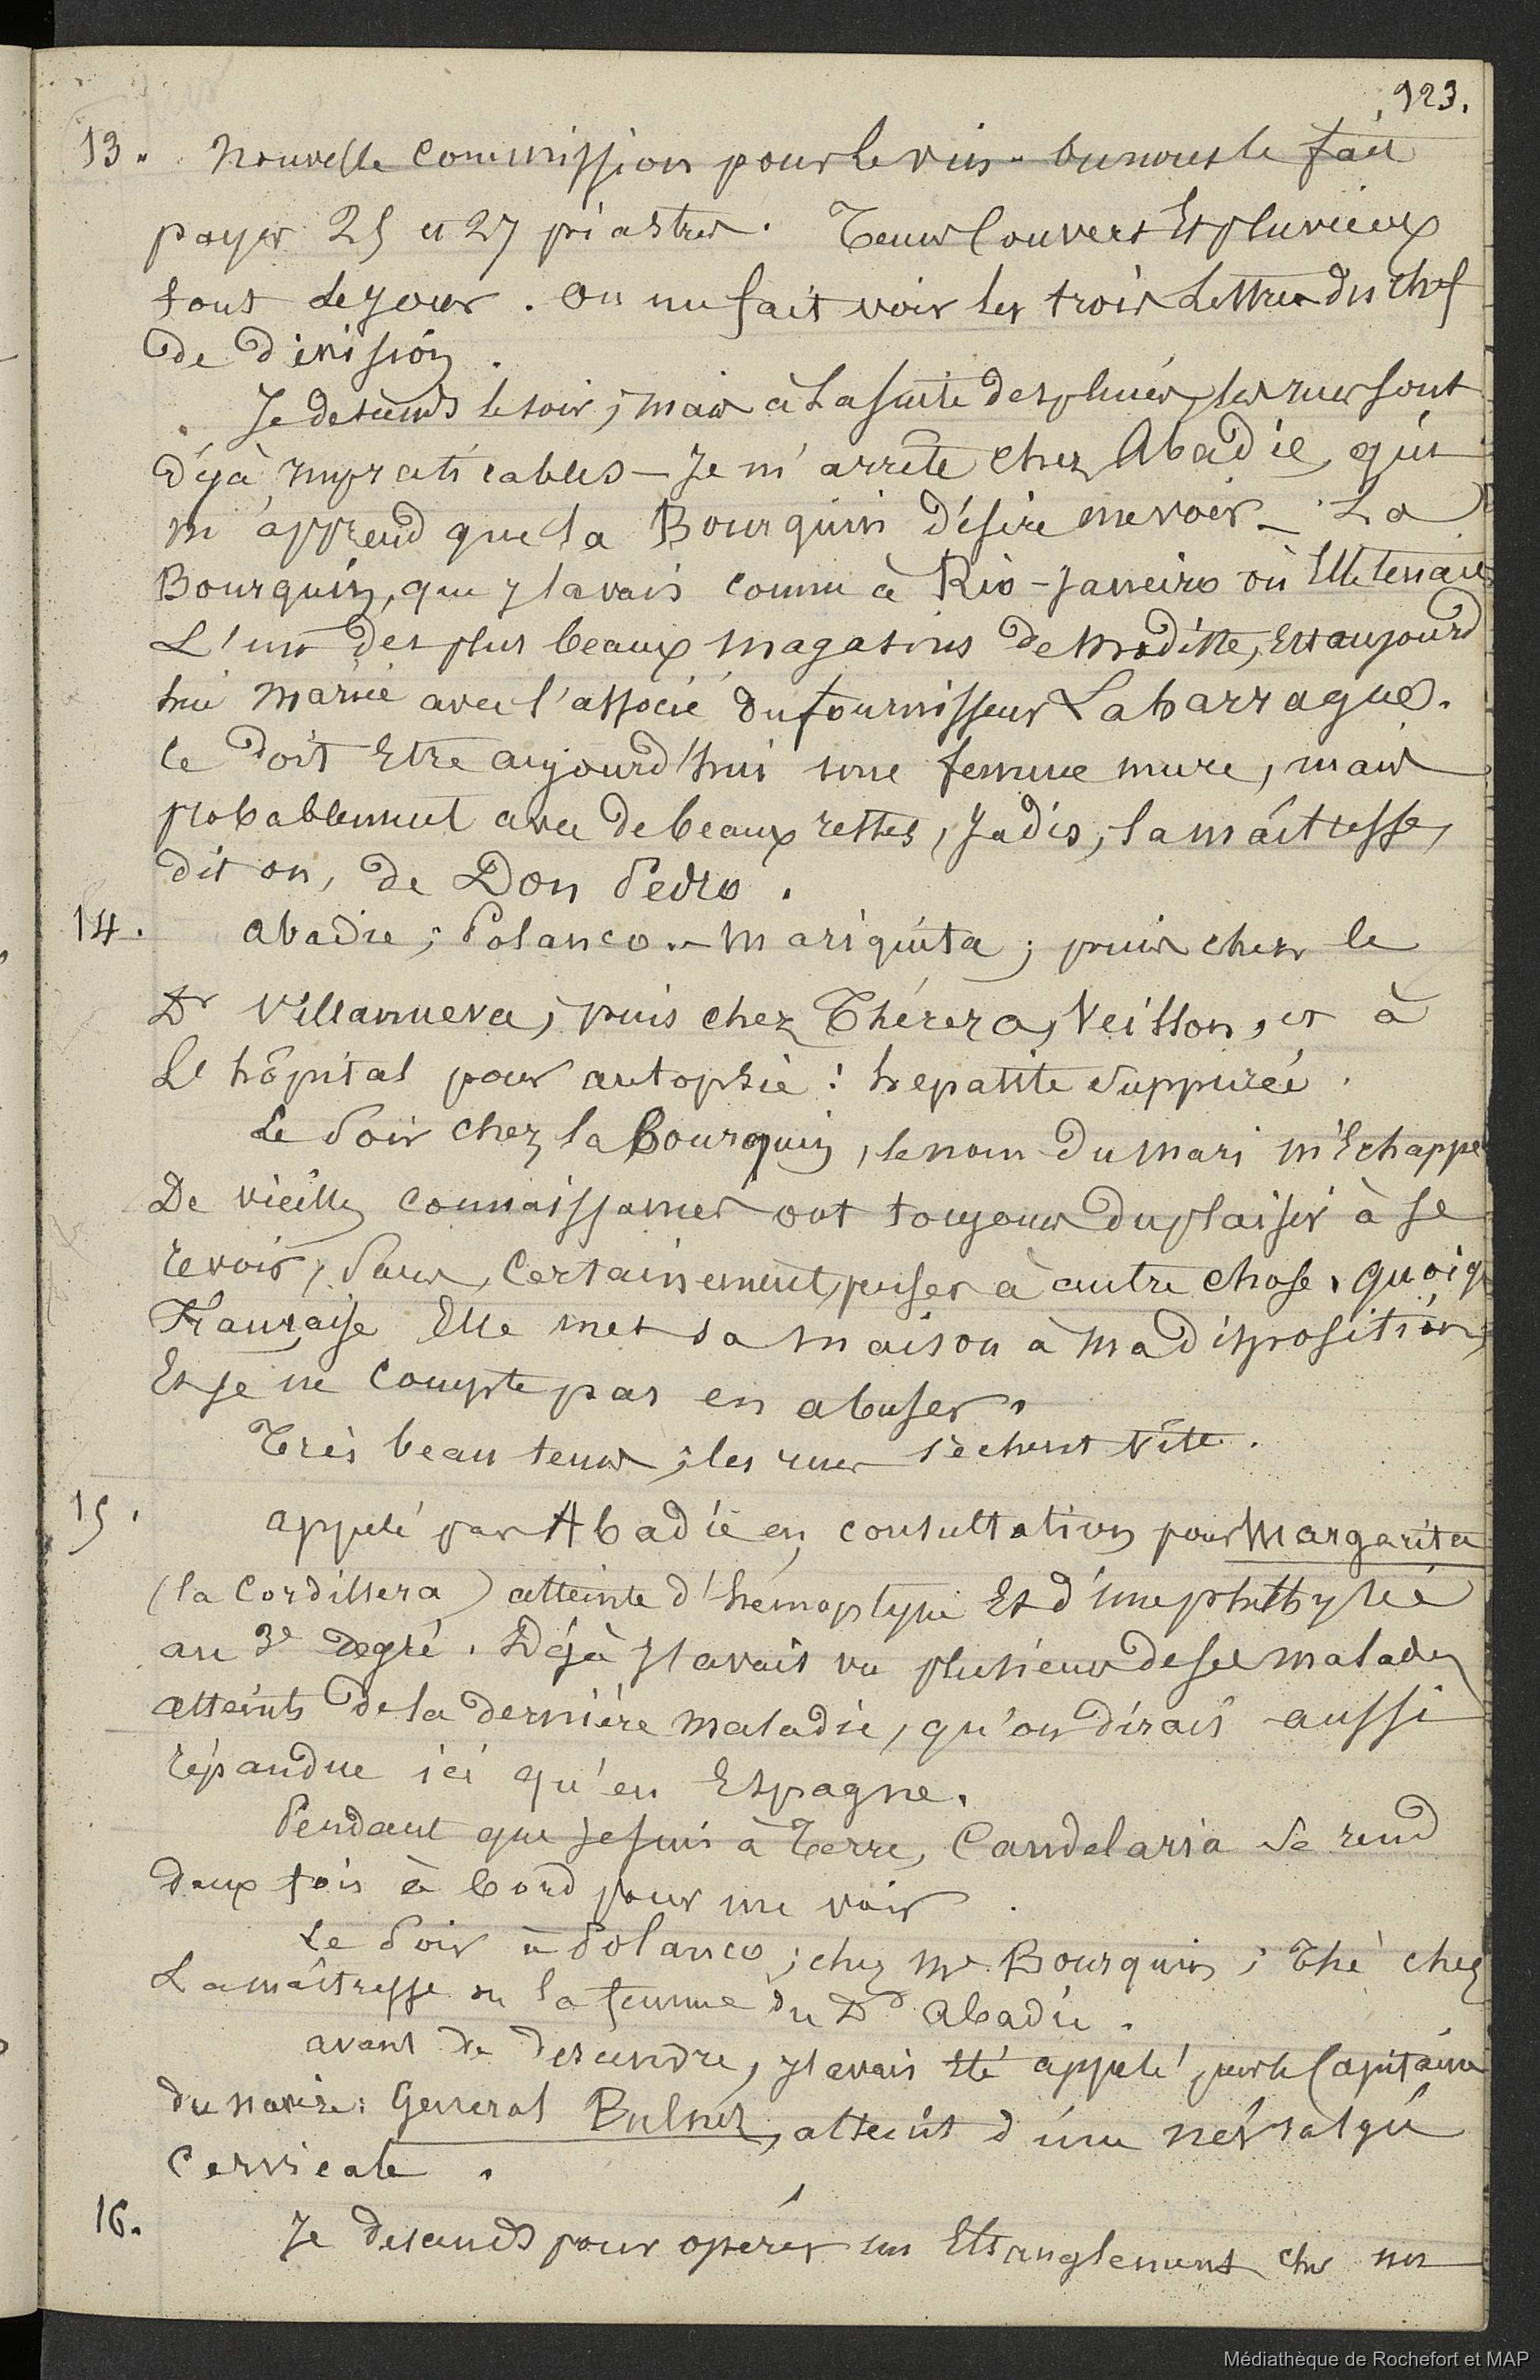 923.
13. Nouvelle commission pour le vin. on nous le fait
payer 25 et 27 piastres. Tems couvert Et pluvieux
tout le jour. On me fait voir les trois Lettres du chef
De Division.
Je descends le soir, mais à La suite des pluies, les rues sont
Déjà impraticables – Je m'arrête chez Abadie, qui
m'apprend que la Bourquin Désire me voir – La
Bourquin, que j'avais connu à Rio-Janeiro où Elle tenait
L'un des plus beaux magasins De modiste, Est aujourd
hui mariée avec l'associé du fournisseur Labarrague.
ce Doit Etre aujourd'hui une femme mure, mais
probablement avec De beaux restes, Jadis, la maîtresse,
dit on, De Don Pedro.
14. Abadie; Solanco – Mariquita; puis chez le
Dr Villanueva, puis chez Thérèza, Veisson, et à
L'hôpital pour autopsie: hepatite suppurée.
Le Soir chez la Bourquin, le nom Du mari m'Echappe
De vieilles connaissances ont toujours Du plaisir à se
revoir, Sans, Certainement, penser à autre chose. quoiq
Française Elle met sa maison à ma Disposition,
Et je ne compte pas en abuser.
Très beau tems, les rues sèchent vite.
15. appelé par Abadie en consultation pour Margarita
(la Cordillera) atteinte d'hémoptysie Et d'une phthysie
au 3e Degré. Déjà j'avais vu plusieurs De ses malades
atteints De la Dernière maladie, qu'on Dirait aussi
répandue ici qu'en Espagne.
Pendant que je suis à Terre, Candelaria se rend
Deux fois à bord pour me voir.
Le Soir à Solanco; chez Me Bourquin; Thé chez
La maîtresse ou la femme Du Dr Abadie.
avant De Descendre, j'avais Eté appelé par le Capitaine
du navire: General Bulnes, atteint d'une névralgie
Cervicale.
16. Je descends pour opérer un Etranglement chez un
Médiathèque de Rochefort et MAP